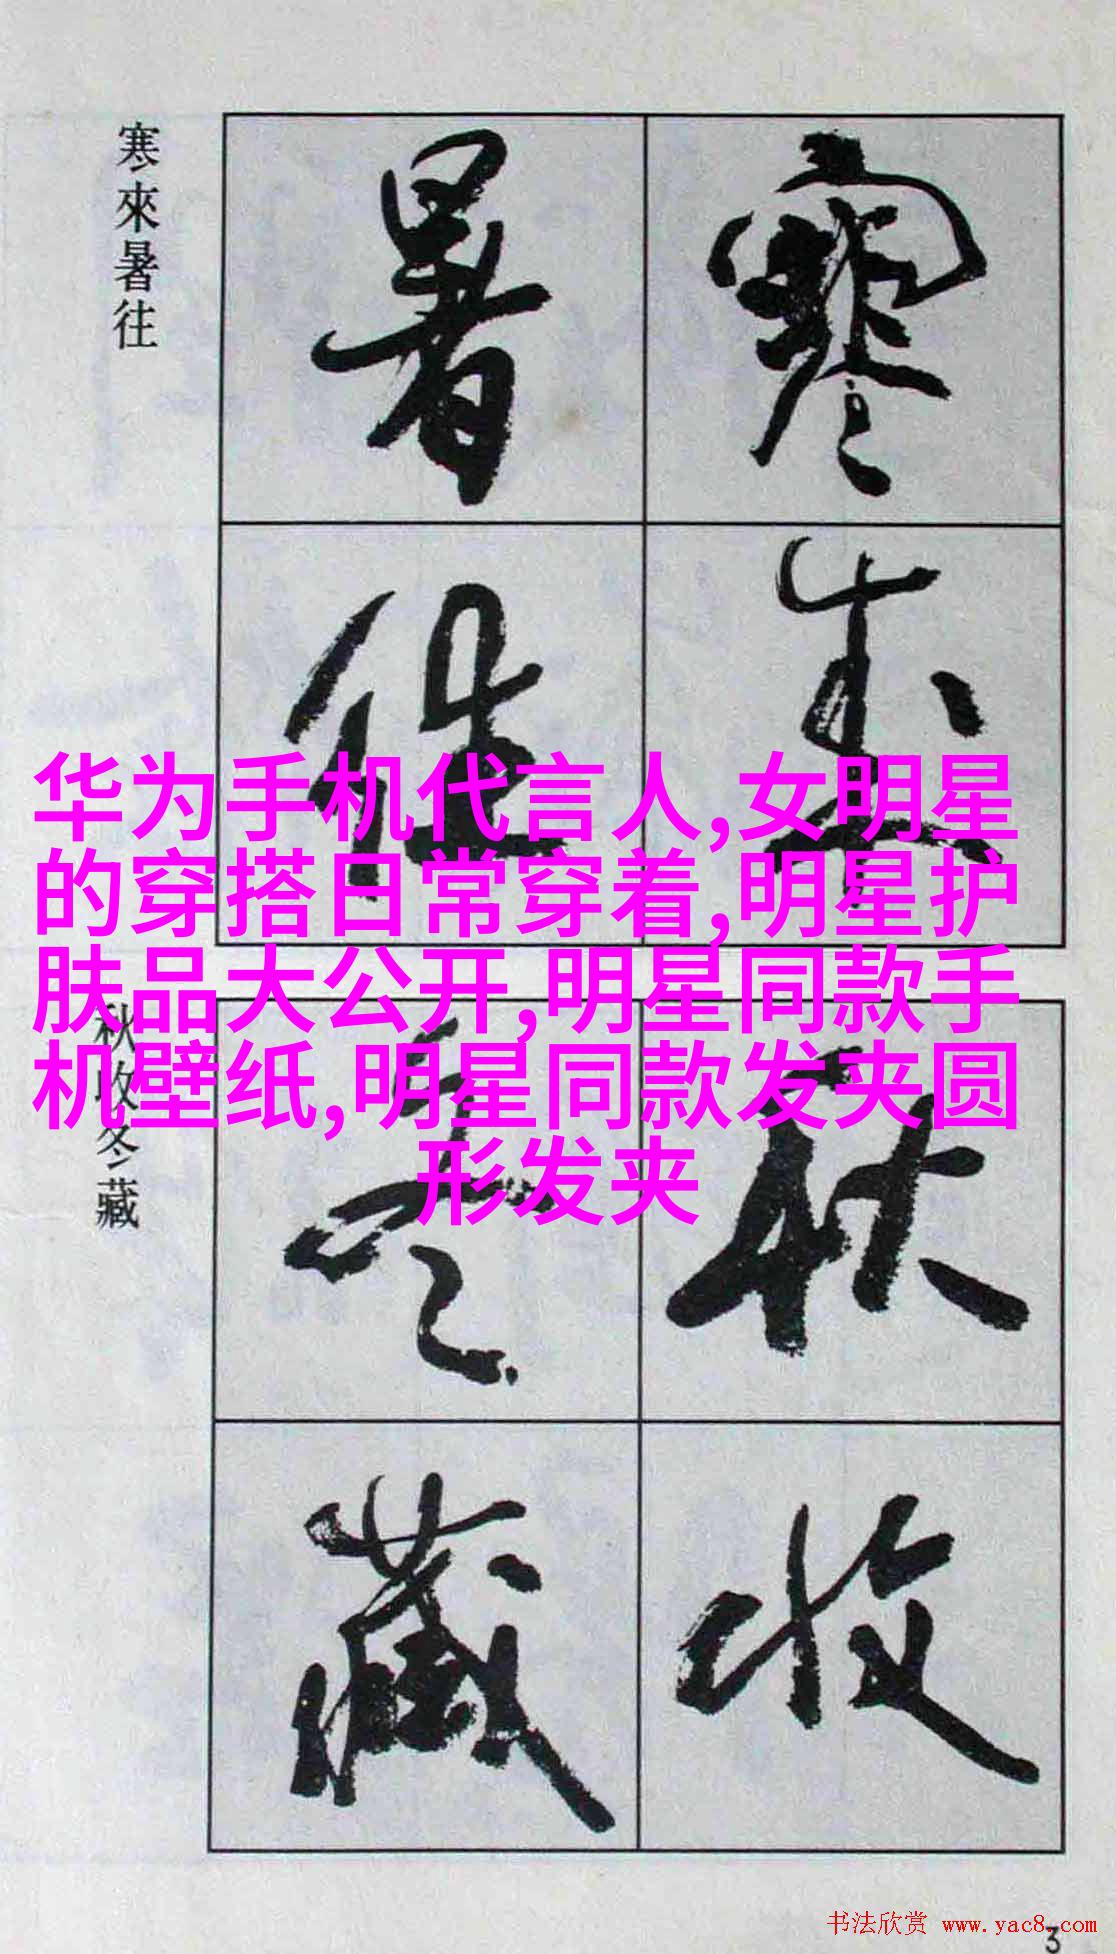 寒來暑往
寒來
暑往
华为手机代言人,女明星
的穿搭日常穿着,明星护
肤品大公开,明星同款手
机壁纸,明星同款发夹圆
形发夹
秋收冬藏
秋收
冬藏
书法欣赏 www.yac8.com
3